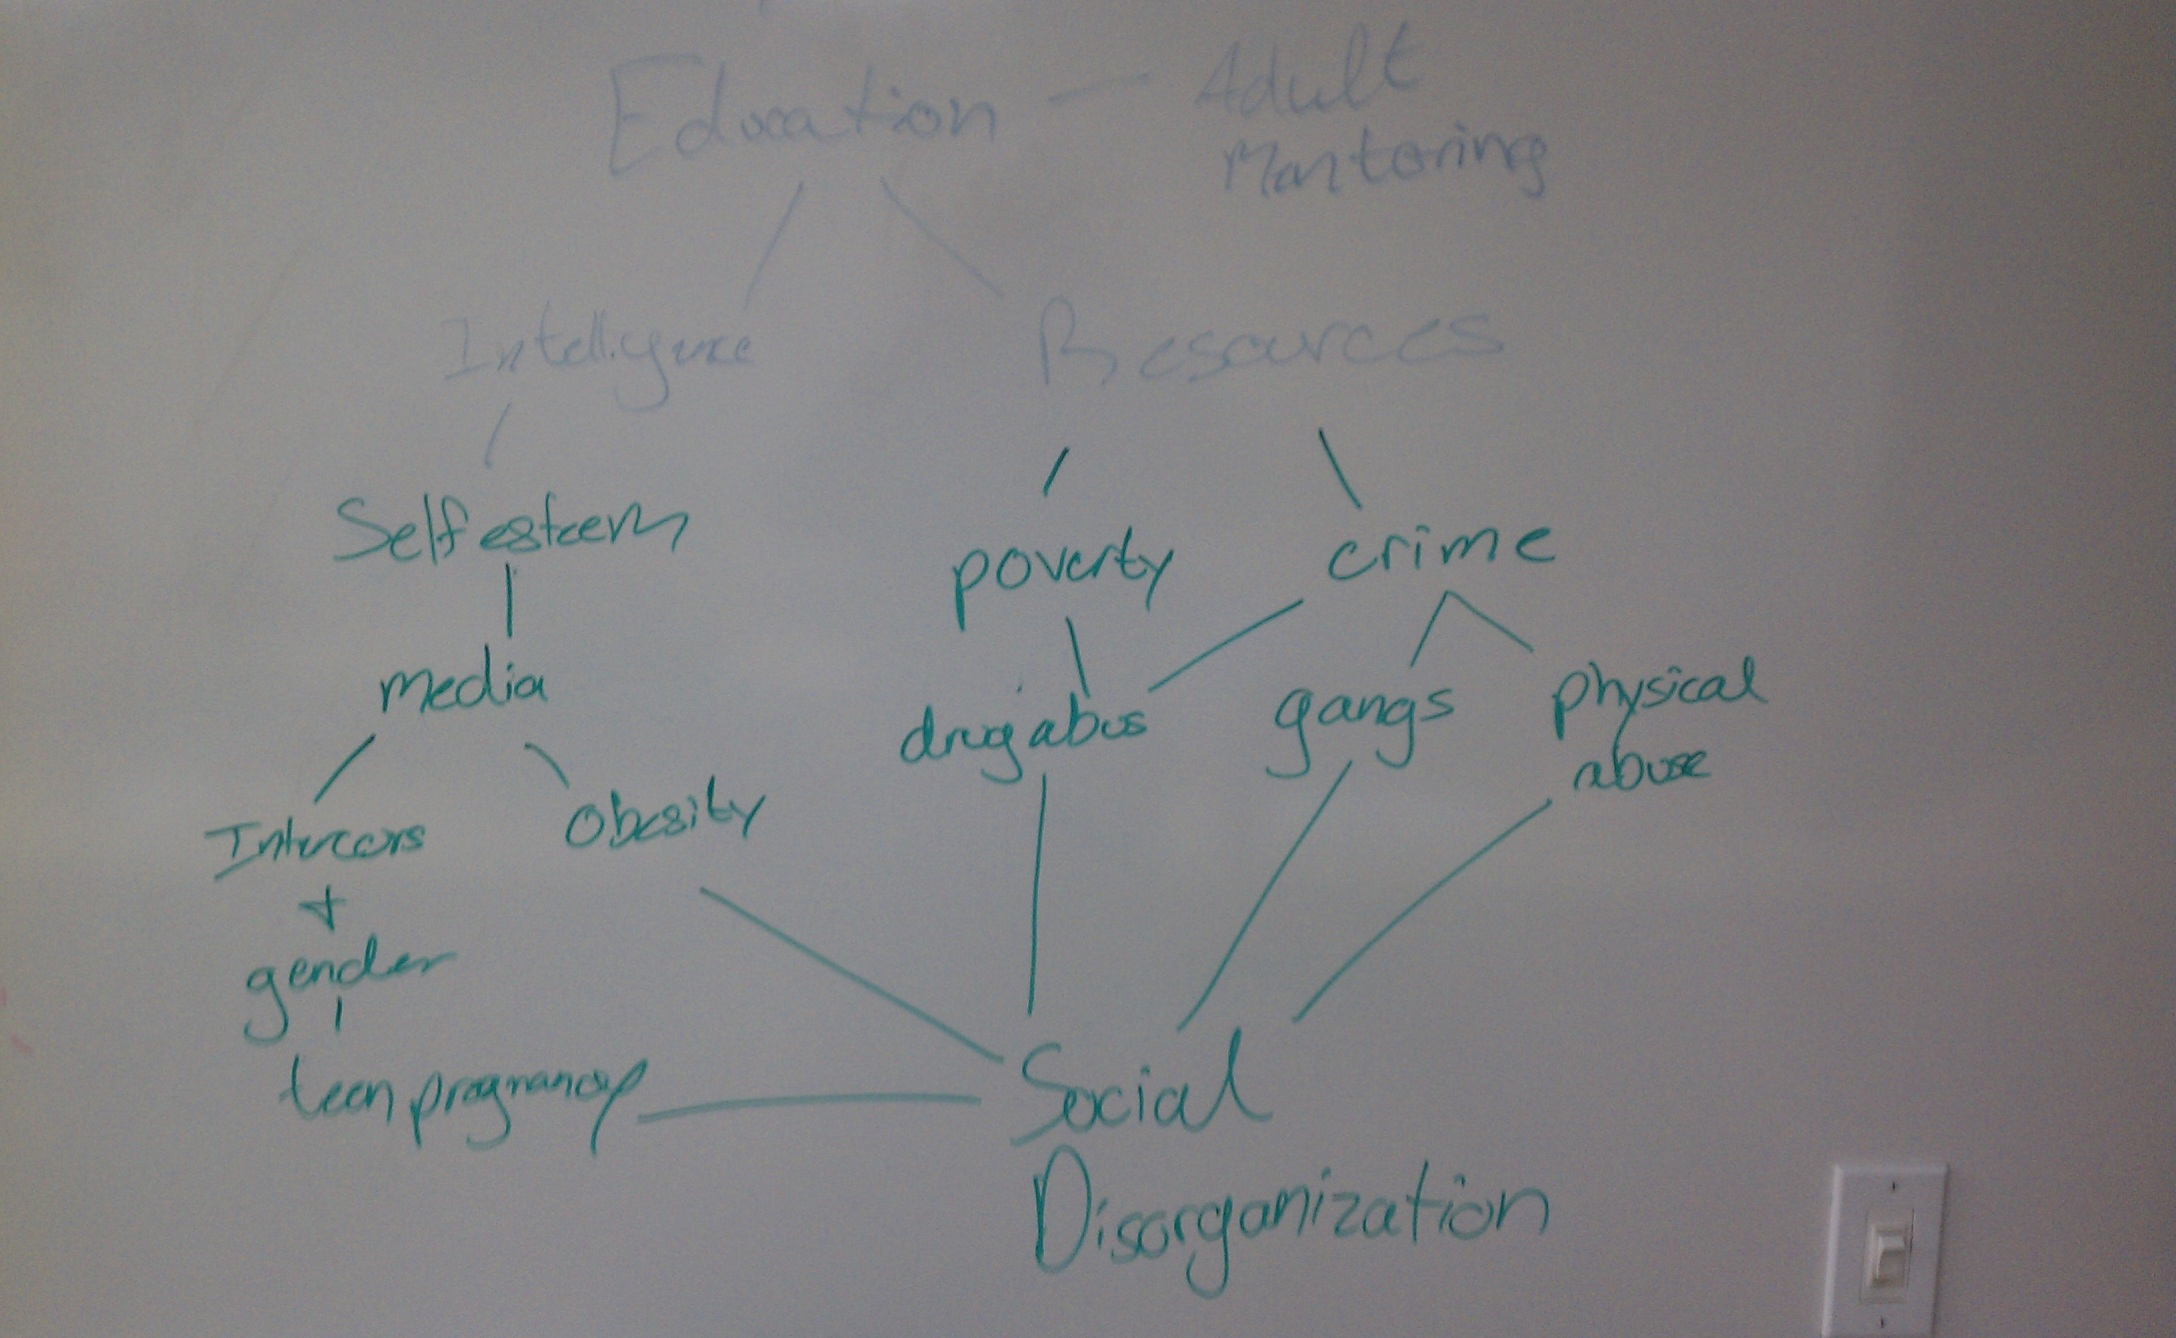 Education — Adult
Mentoring
Intelligence
Resources
Self esteem
poverty
crime
media
drug abus
gangs
physical
abuse
Obesity
+
gender
teen pregnancy
Social
Disorganization